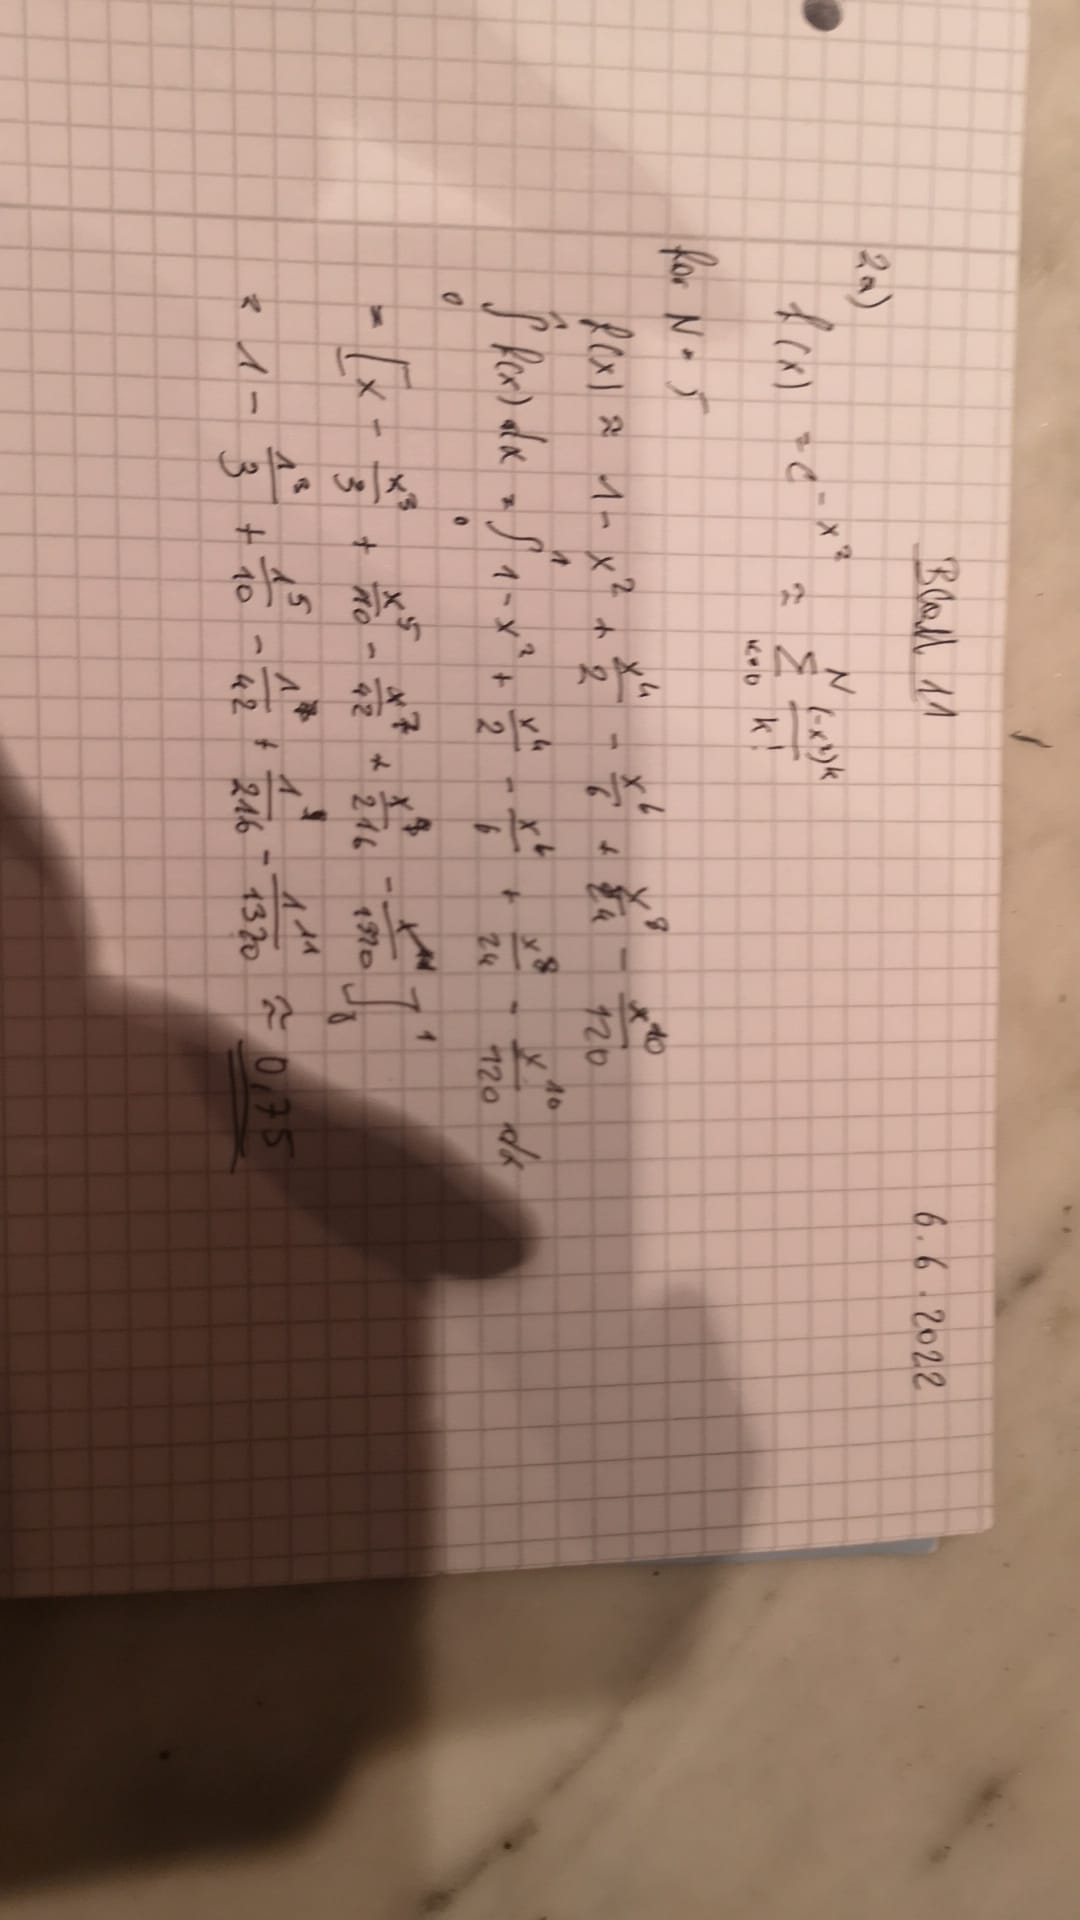 Blatt 11 6.6.2022
2a)
f(x) = e^{-x²} ≈ Σ_{k=0}^{N} (-x²)^k / k!
for N = 5
f(x) ≈ 1 - x² + x⁴/2 - x⁶/6 + x⁸/24 - x¹⁰/120
∫₀¹ f(x) dx = ∫₀¹ 1 - x² + x⁴/2 - x⁶/6 + x⁸/24 - x¹⁰/120 dx
= [x - x³/3 + x⁵/10 - x⁷/42 + x⁹/216 - x¹¹/1320]₀¹
= 1 - 1³/3 + 1⁵/10 - 1⁷/42 + 1⁹/216 - 1¹¹/1320 ≈ 0,75